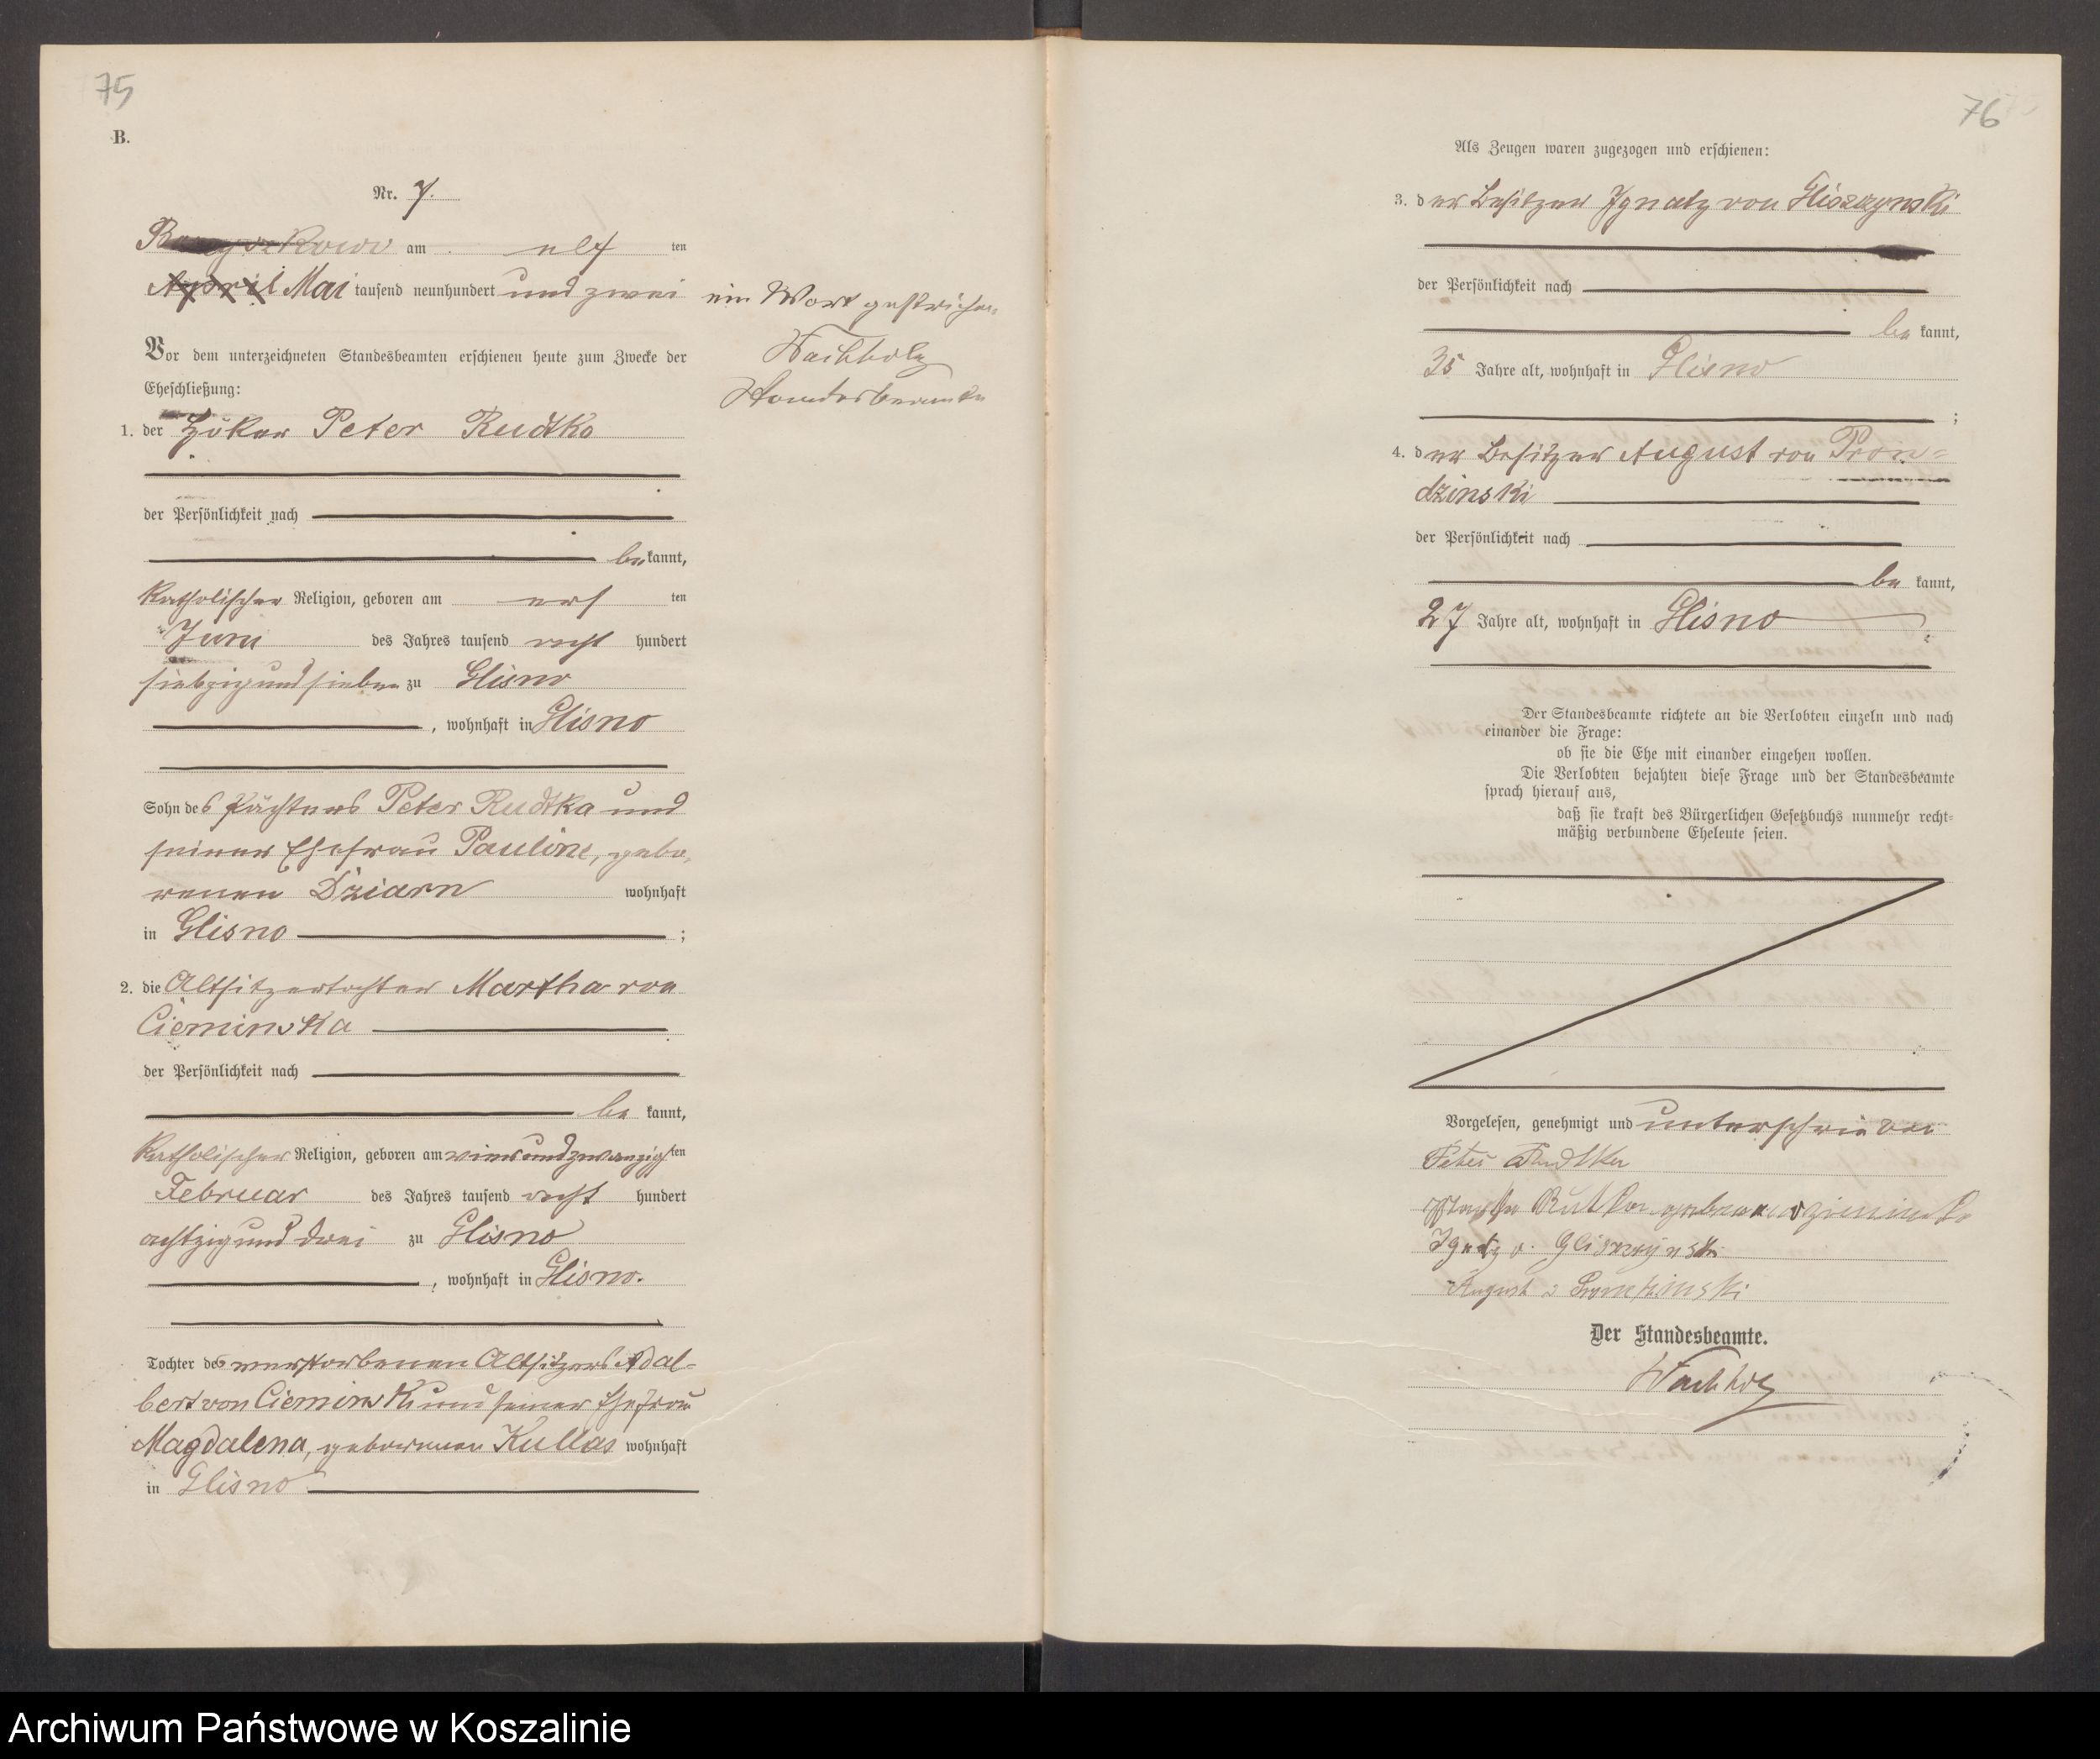 75
B.
Nr. 7.
am elf ten
April Mai tausend neunhundert und zwei
ein Wort gestrichen
Wachholz
Standesbeamte
Vor dem unterzeichneten Standesbeamten erschienen heute zum Zwecke der
Eheschließung:
1. der Höker Peter Rudtka
der Persönlichkeit nach
bekannt,
katholischer Religion, geboren am ersten
Juni des Jahres tausend acht hundert
siebzig und sieben zu Glisno
, wohnhaft in Glisno
Sohn des Pächters Peter Rudtka und
seiner Ehefrau Pauline, gebo-
renen Dziarn wohnhaft
in Glisno ;
2. die Altsitzertochter Martha von
Cieminska
der Persönlichkeit nach
bekannt,
katholischer Religion, geboren am vierundzwanzigsten
Februar des Jahres tausend acht hundert
achtzig und drei zu Glisno
, wohnhaft in Glisno.
Tochter des verstorbenen Altsitzers Adal-
bert von Cieminski und seiner Ehefrau
Magdalena, geborenen Kullas wohnhaft
in Glisno
76
Als Zeugen waren zugezogen und erschienen:
3. der Besitzer Ignatz von Gliszczynski
der Persönlichkeit nach
bekannt,
35 Jahre alt, wohnhaft in Glisno
;
4. der Besitzer August von Pron-
dzinski
der Persönlichkeit nach
bekannt,
27 Jahre alt, wohnhaft in Glisno
Der Standesbeamte richtete an die Verlobten einzeln und nach
einander die Frage:
ob sie die Ehe mit einander eingehen wollen.
Die Verlobten bejahten diese Frage und der Standesbeamte
sprach hierauf aus,
daß sie kraft des Bürgerlichen Gesetzbuchs nunmehr recht-
mäßig verbundene Eheleute seien.
Vorgelesen, genehmigt und unterschrieben
Peter Rudtka
Martha Rutka
Ignatz v. Gliszczynski
August v
Der Standesbeamte.
Wachholz
Archiwum Państwowe w Koszalinie